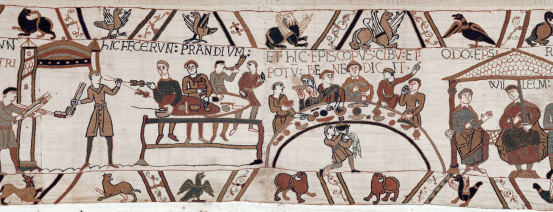 HIC FECERVN: PRANDIVM:
ET HIC EPISCOPVS: CIBV: ET
POTV: BE NE DIC
ODO: EPS:
WILLELM: